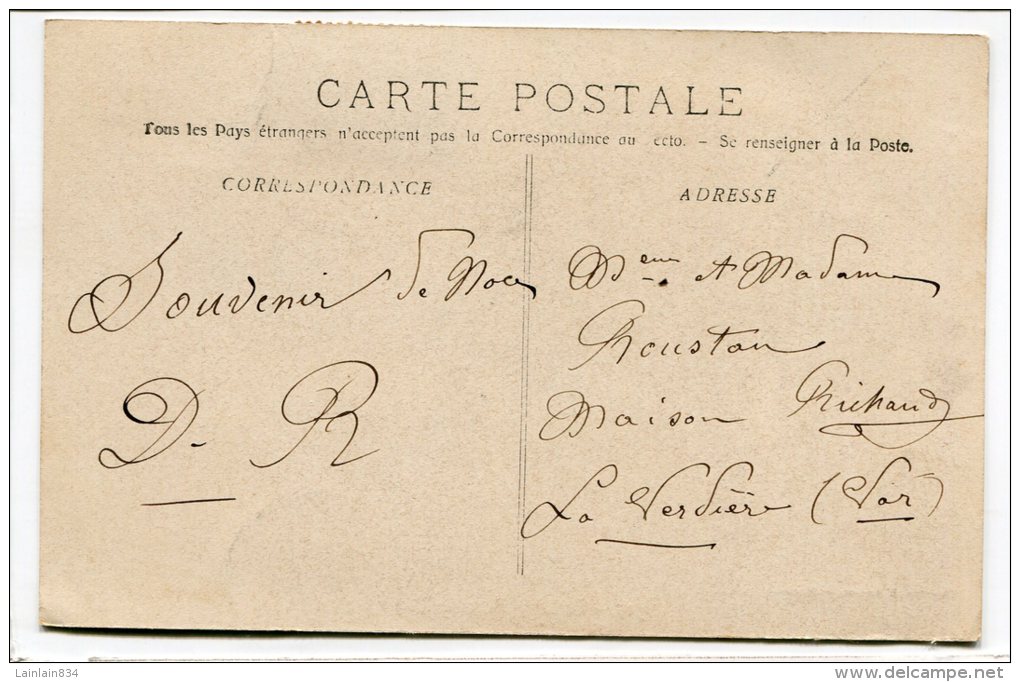 CARTE POSTALE
Tous les Pays étrangers n'acceptent pas la Correspondance au ecto. – Se renseigner à la Poste.
CORRESPONDANCE
ADRESSE
Souvenir de Noces
D. R
Meur et Madame
Roustan
Maison Richaud
La Verdière (Var)
Lainlain834
www.delcampe.net